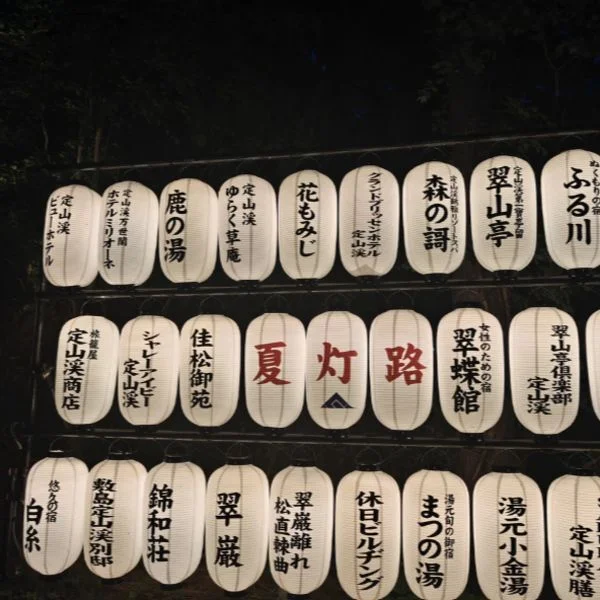 定山渓
ビューホテル
定山渓万世閣
ホテルミリオーネ
鹿の湯
定山渓
ゆらく草庵
花もみじ
グランドブリッセンホテル
定山渓
森の謌
翠山亭
ぬくもりの宿
ふる川
旅籠屋
定山渓商店
シャレーアイビー
定山渓
佳松御苑
夏灯路
女性のための宿
翠蝶館
翠山亭倶楽部
定山渓
悠久の宿
白糸
敷島定山渓別邸
錦和荘
翠巌
翠巌離れ
松直棘曲
休日ビルヂング
湯元旬の御宿
まつの湯
湯元小金湯
定山渓膳